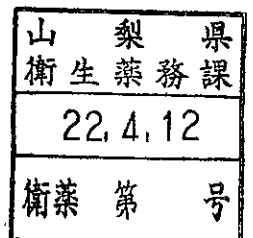 山梨県
衛生薬務課
22.4.12
衛薬第号